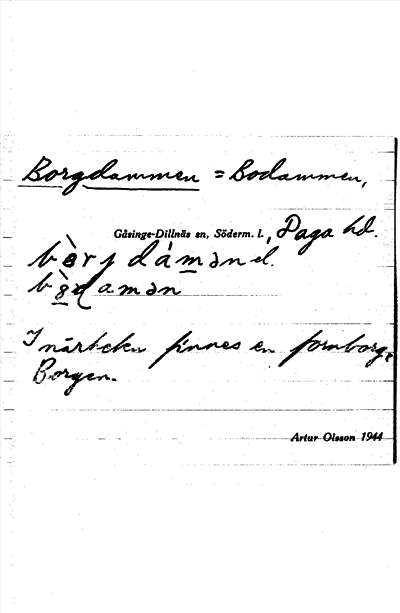 Borgdammen = Bodammen,
Gåsinge-Dillnäs sn, Söderm. l., Daga hd.
bòrj dámən el.
bòdamən
I närheten finnes en fornborg,
Borgen.
Artur Olsson 1944